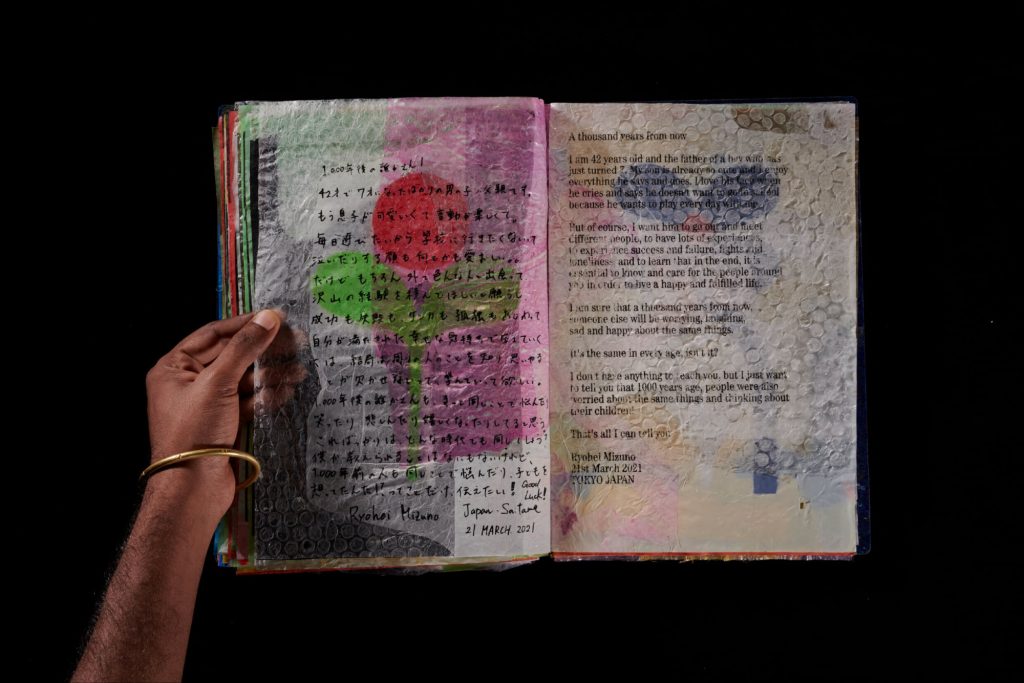 1,000年後の誰かさん!
42才で7才になったばかりの男の子の父親です。
もう息子が可愛いくて言動が楽しくて。
毎日遊びたいから学校に行きたくないって
泣いたりする顔も何もかも愛おしい。
だけどもちろん外で色んな人に出会って
沢山の経験を積んでほしいと願うし
成功も失敗も ケンカも 孤独も
自分が満たされた幸せな気持ちで生きていく
には 結局お周りの人のことを知り思いやる
ことが欠かせないって、学んでいって欲しい。
1,000年後の誰かさんも、きっと同じことで悩んだり
笑ったり 悲しんだり嬉しくなったりしてると思う
こればっかりは、どんな時代でも同じでしょう?
僕が教えられることはなにもないけれど、
1,000年前の人も同じことで悩んだり、子どもを
想ってたんだ!ってことだけ、伝えたい!
Good Luck!
Ryohei Mizuno Japan. Saitama
21 MARCH. 2021
A thousand years from now
I am 42 years old and the father of a boy who has
just turned 7. My son is already so cute and I enjoy
everything he says and does. I love his face when
he cries and says he doesn't want to go to school
because he wants to play every day with me.
But of course, I want him to go out and meet
different people, to have lots of experiences,
to experience success and failure, fights and
loneliness, and to learn that in the end, it is
essential to know and care for the people around
you in order to live a happy and fulfilled life.
I am sure that a thousand years from now,
someone else will be worrying, laughing,
sad and happy about the same things.
It's the same in every age, isn't it?
I don't have anything to teach you, but I just want
to tell you that 1000 years ago, people were also
worried about the same things and thinking about
their children!
That's all I can tell you
Ryohei Mizuno
21st March 2021
TOKYO JAPAN